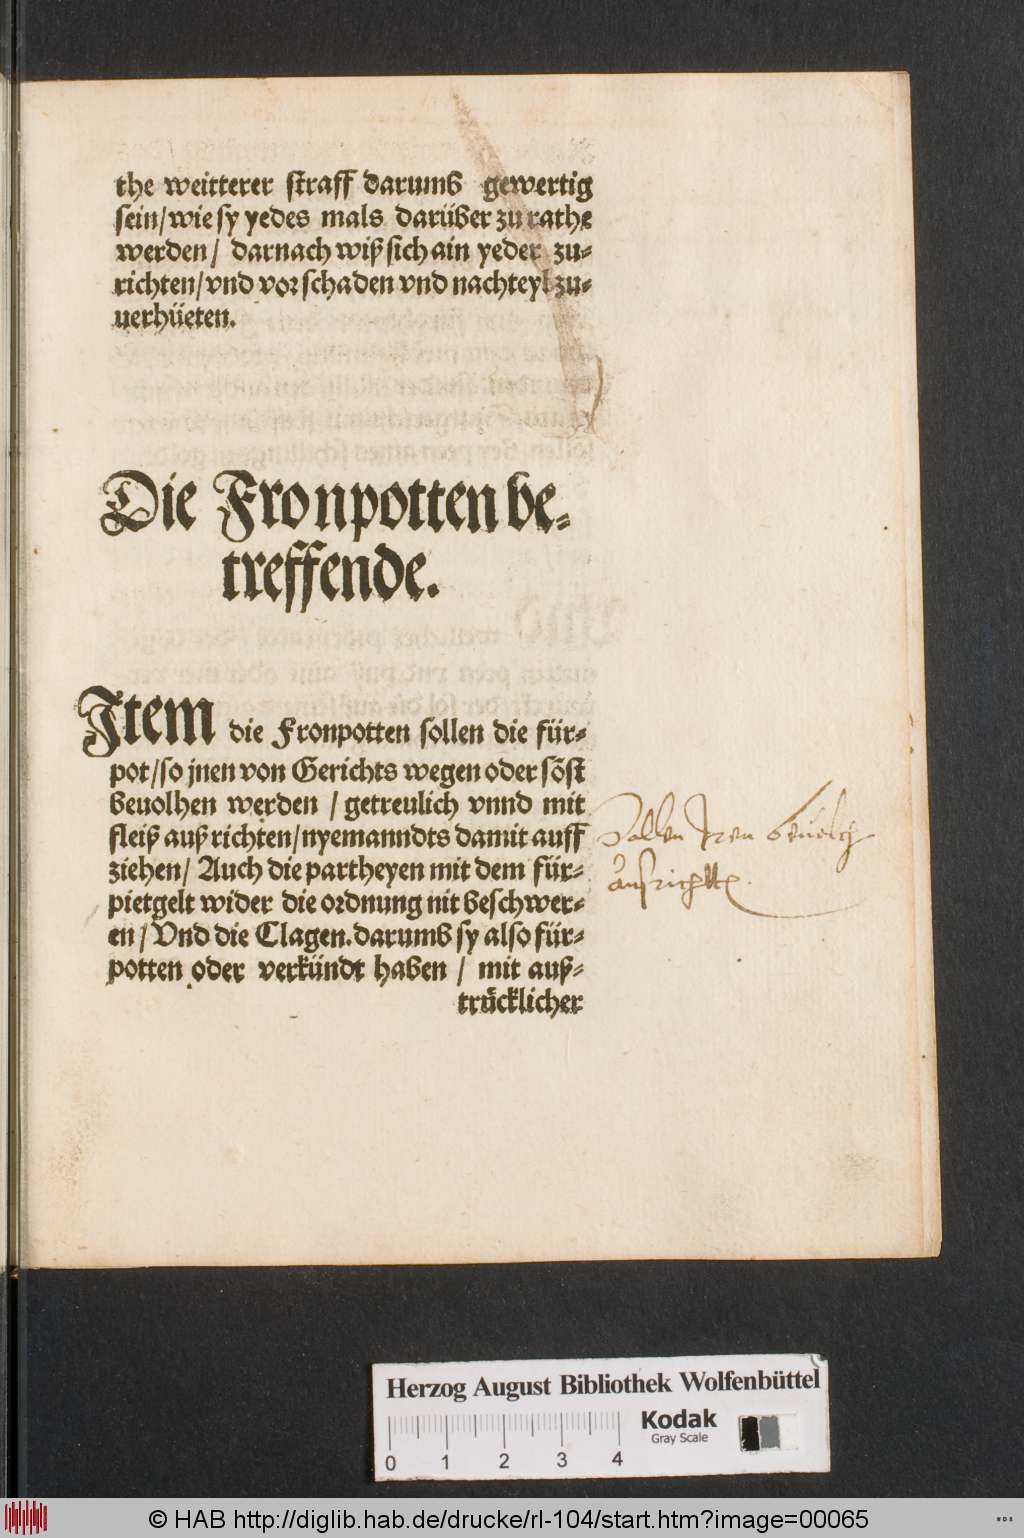 the weitterer straff darumb gewertig
sein/wie sy yedes mals darüber zu rathe
werden/ darnach wiß sich ain yeder zu-
richten/vnd vor schaden vnd nachteyl zu-
uerhüeten.
Die Fronpotten be-
treffende.
Item die Fronpotten sollen die für-
pot/so jnen von Gerichts wegen oder söst
beuolhen werden / getreulich vnnd mit
fleiß auß richten/nyemanndts damit auff
ziehen/ Auch die partheyen mit dem für-
pietgelt wider die ordnung nit beschwer-
en/ Vnd die Clagen.darumb sy also für-
potten oder verkündt haben / mit auß-
trücklicher
Sollen Iren beuelch
ausrichtten.
Herzog August Bibliothek Wolfenbüttel
Kodak
Gray Scale
0 1 2 3 4
© HAB http://diglib.hab.de/drucke/rl-104/start.htm?image=00065